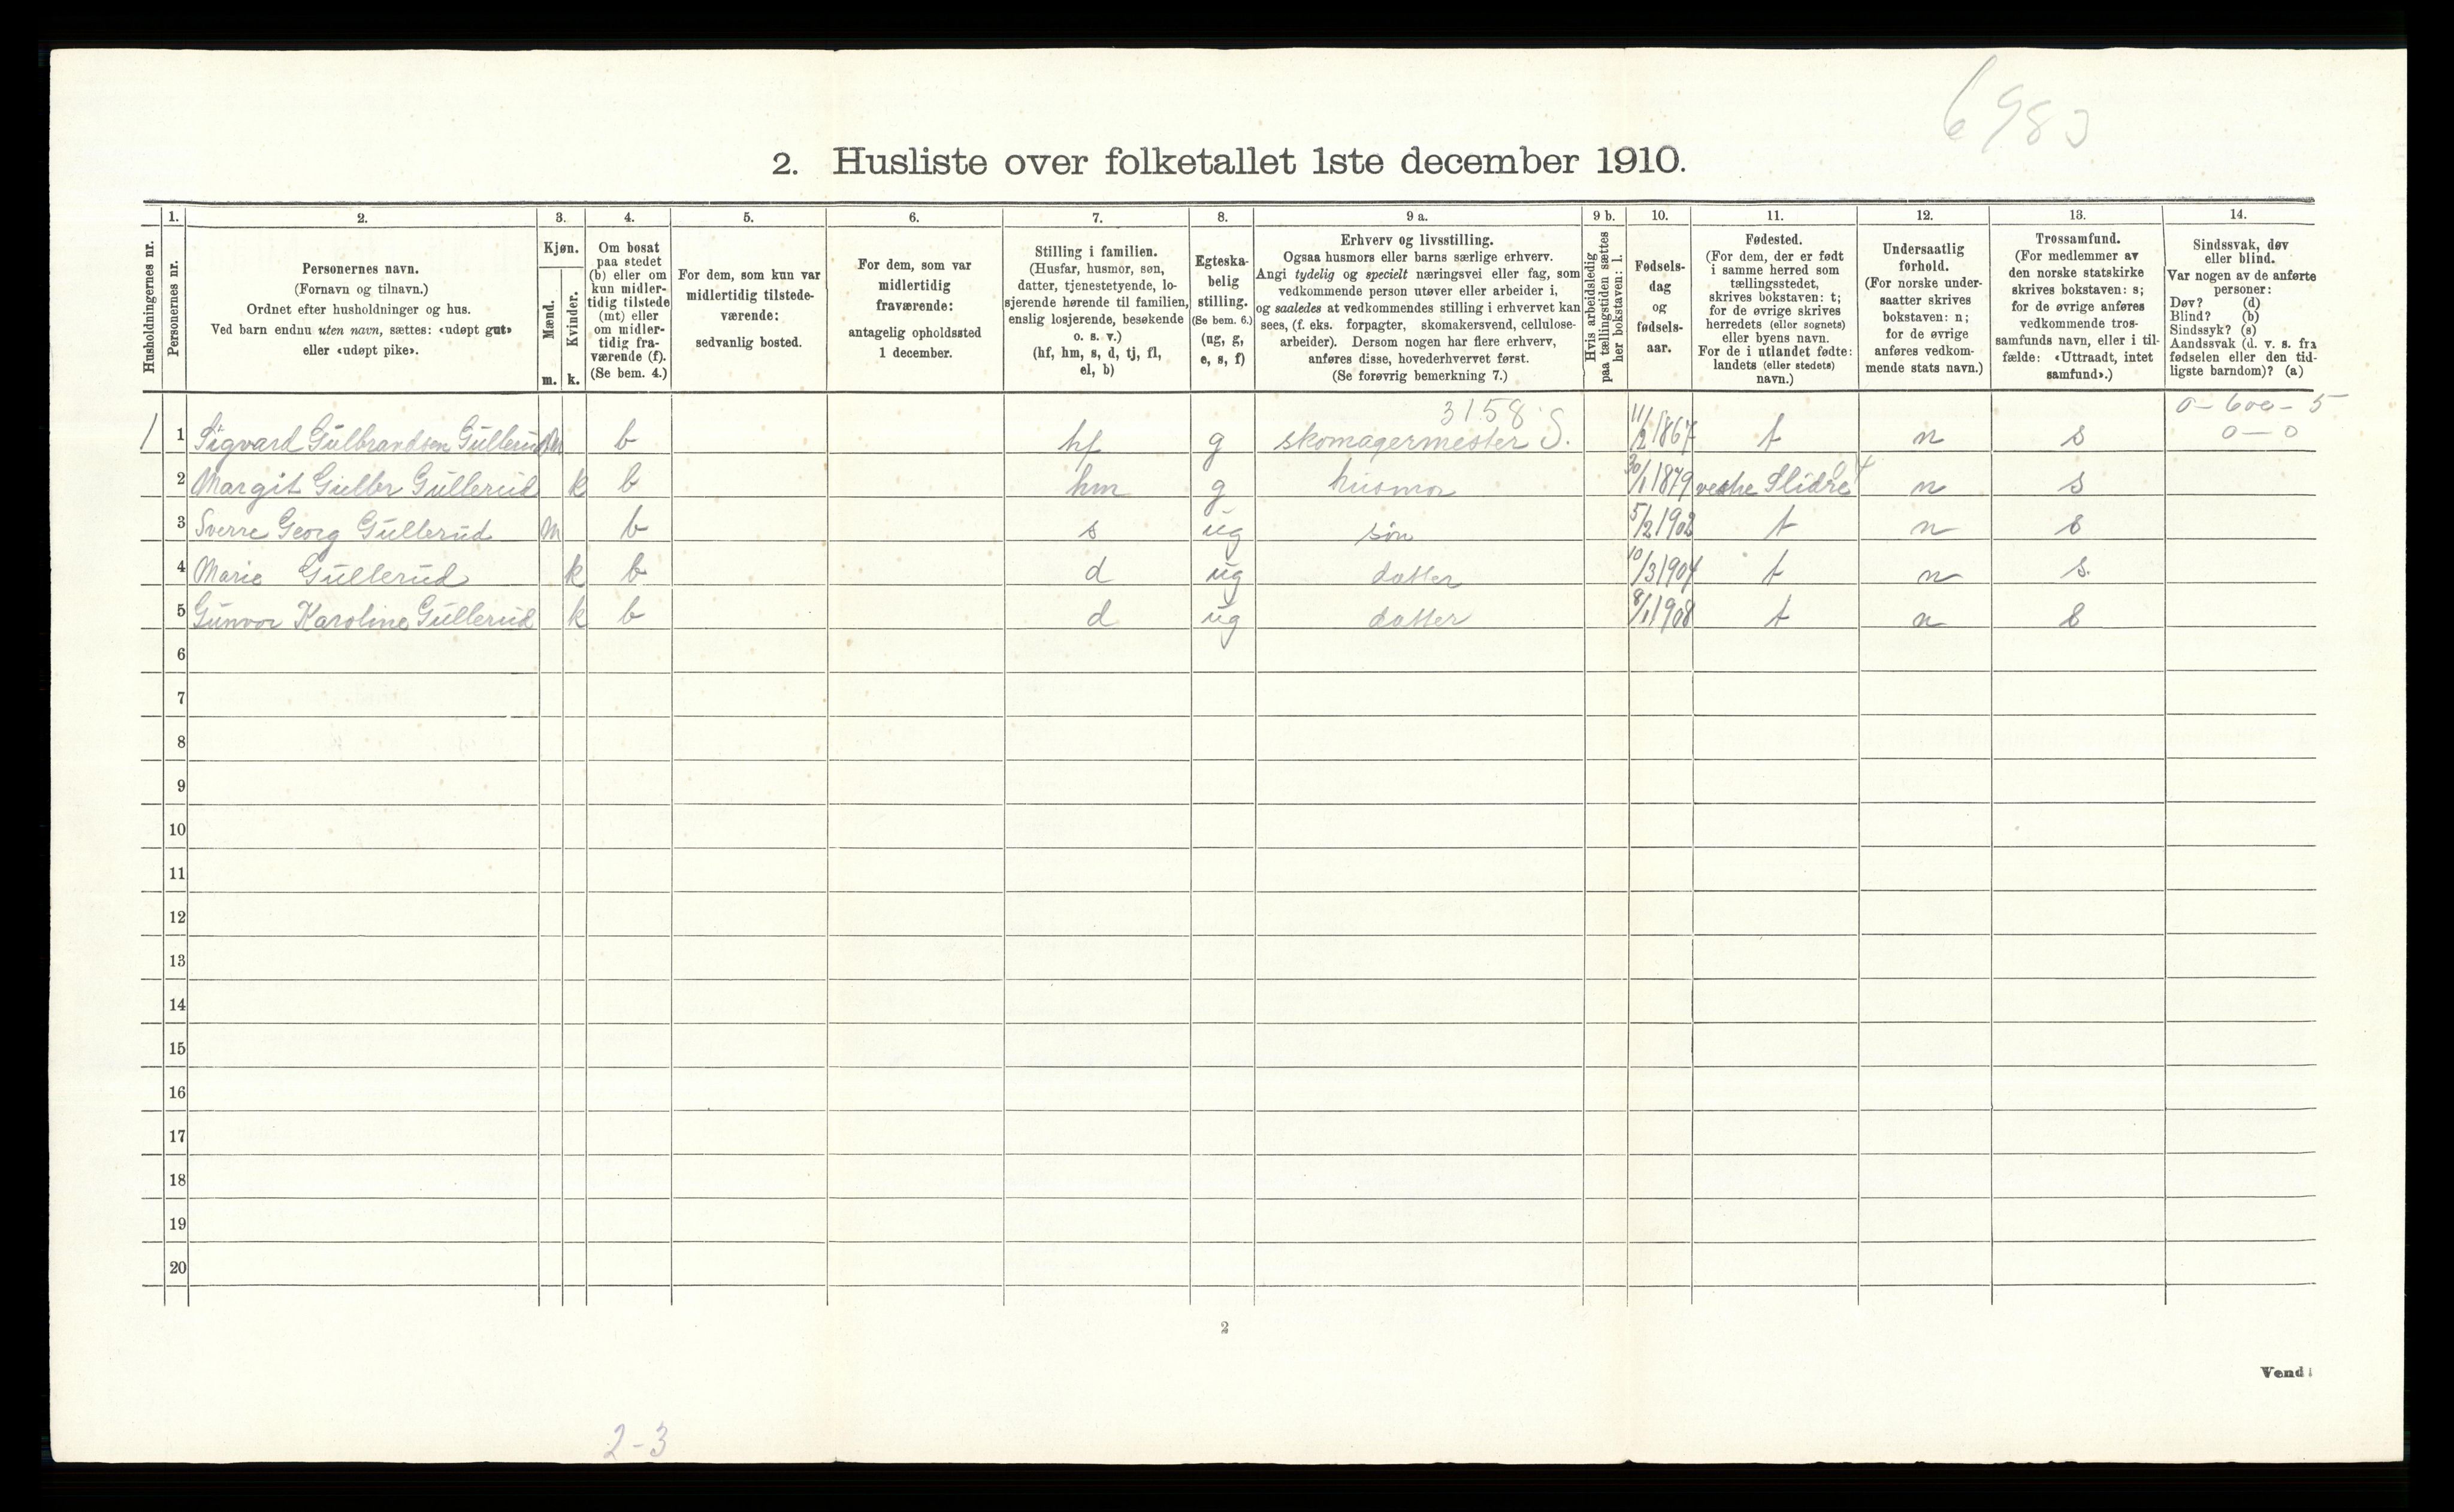 6983
2. Husliste over folketallet 1ste december 1910.
Husholdningernes nr.
1.
Personernes nr.
2.
Personernes navn.
(Fornavn og tilnavn.)
Ordnet efter husholdninger og hus.
Ved barn endnu uten navn, sættes: «udøpt gut»
eller «udøpt pike».
3.
Kjøn.
Mænd.
m.
Kvinder.
k.
4.
Om bosat
paa stedet
(b) eller om
kun midler-
tidig tilstede
(mt) eller
om midler-
tidig fra-
værende (f).
(Se bem. 4.)
5.
For dem, som kun var
midlertidig tilstede-
værende:
sedvanlig bosted.
6.
For dem, som var
midlertidig
fraværende:
antagelig opholdssted
1 december.
7.
Stilling i familien.
(Husfar, husmor, søn,
datter, tjenestetyende, lo-
sjerende hørende til familien,
enslig losjerende, besøkende
o. s. v.)
(hf, hm, s, d, tj, fl,
el, b)
8.
Egteska-
belig
stilling.
(Se bem. 6.)
(ug, g,
e, s, f)
9 a.
Erhverv og livsstilling.
Ogsaa husmors eller barns særlige erhverv.
Angi tydelig og specielt næringsvei eller fag, som
vedkommende person utøver eller arbeider i,
og saaledes at vedkommendes stilling i erhvervet kan
sees, (f. eks. forpagter, skomakersvend, cellulose-
arbeider). Dersom nogen har flere erhverv,
anføres disse, hovederhvervet først.
(Se forøvrig bemerkning 7.)
9 b.
Hvis arbeidsledig
paa tællingstiden sættes
her bokstaven: l.
10.
Fødsels-
dag
og
fødsels-
aar.
11.
Fødested.
(For dem, der er født
i samme herred som
tællingsstedet,
skrives bokstaven: t;
for de øvrige skrives
herredets (eller sognets)
eller byens navn.
For de i utlandet fødte:
landets (eller stedets)
navn.)
12.
Undersaatlig
forhold.
(For norske under-
saatter skrives
bokstaven: n;
for de øvrige
anføres vedkom-
mende stats navn.)
13.
Trossamfund.
(For medlemmer av
den norske statskirke
skrives bokstaven: s;
for de øvrige anføres
vedkommende tros-
samfunds navn, eller i til-
fælde: «Uttraadt, intet
samfund».)
14.
Sindssvak, døv
eller blind.
Var nogen av de anførte
personer:
Døv? (d)
Blind? (b)
Sindssyk? (s)
Aandssvak (d. v. s. fra
fødselen eller den tid-
ligste barndom)? (a)
3158 0-600-5
1 1 Sigvard Gulbrandsen Gullerud m b hf g skomagermester S. 11/2 1867 t n s 0-0
2 Margit Gullbr Gullerud k b hm g husmor 30/1 1879 vestre Slidre n s
3 Sverre Georg Gullerud m b s ug søn 5/2 1902 t n s
4 Marie Gullerud k b d ug datter 10/3 1904 t n s.
5 Gunvor Karoline Gullerud k b d ug datter 8/1 1908 t n s
6
7
8
9
10
11
12
13
14
15
16
17
18
19
20
2
Vend!
2-3